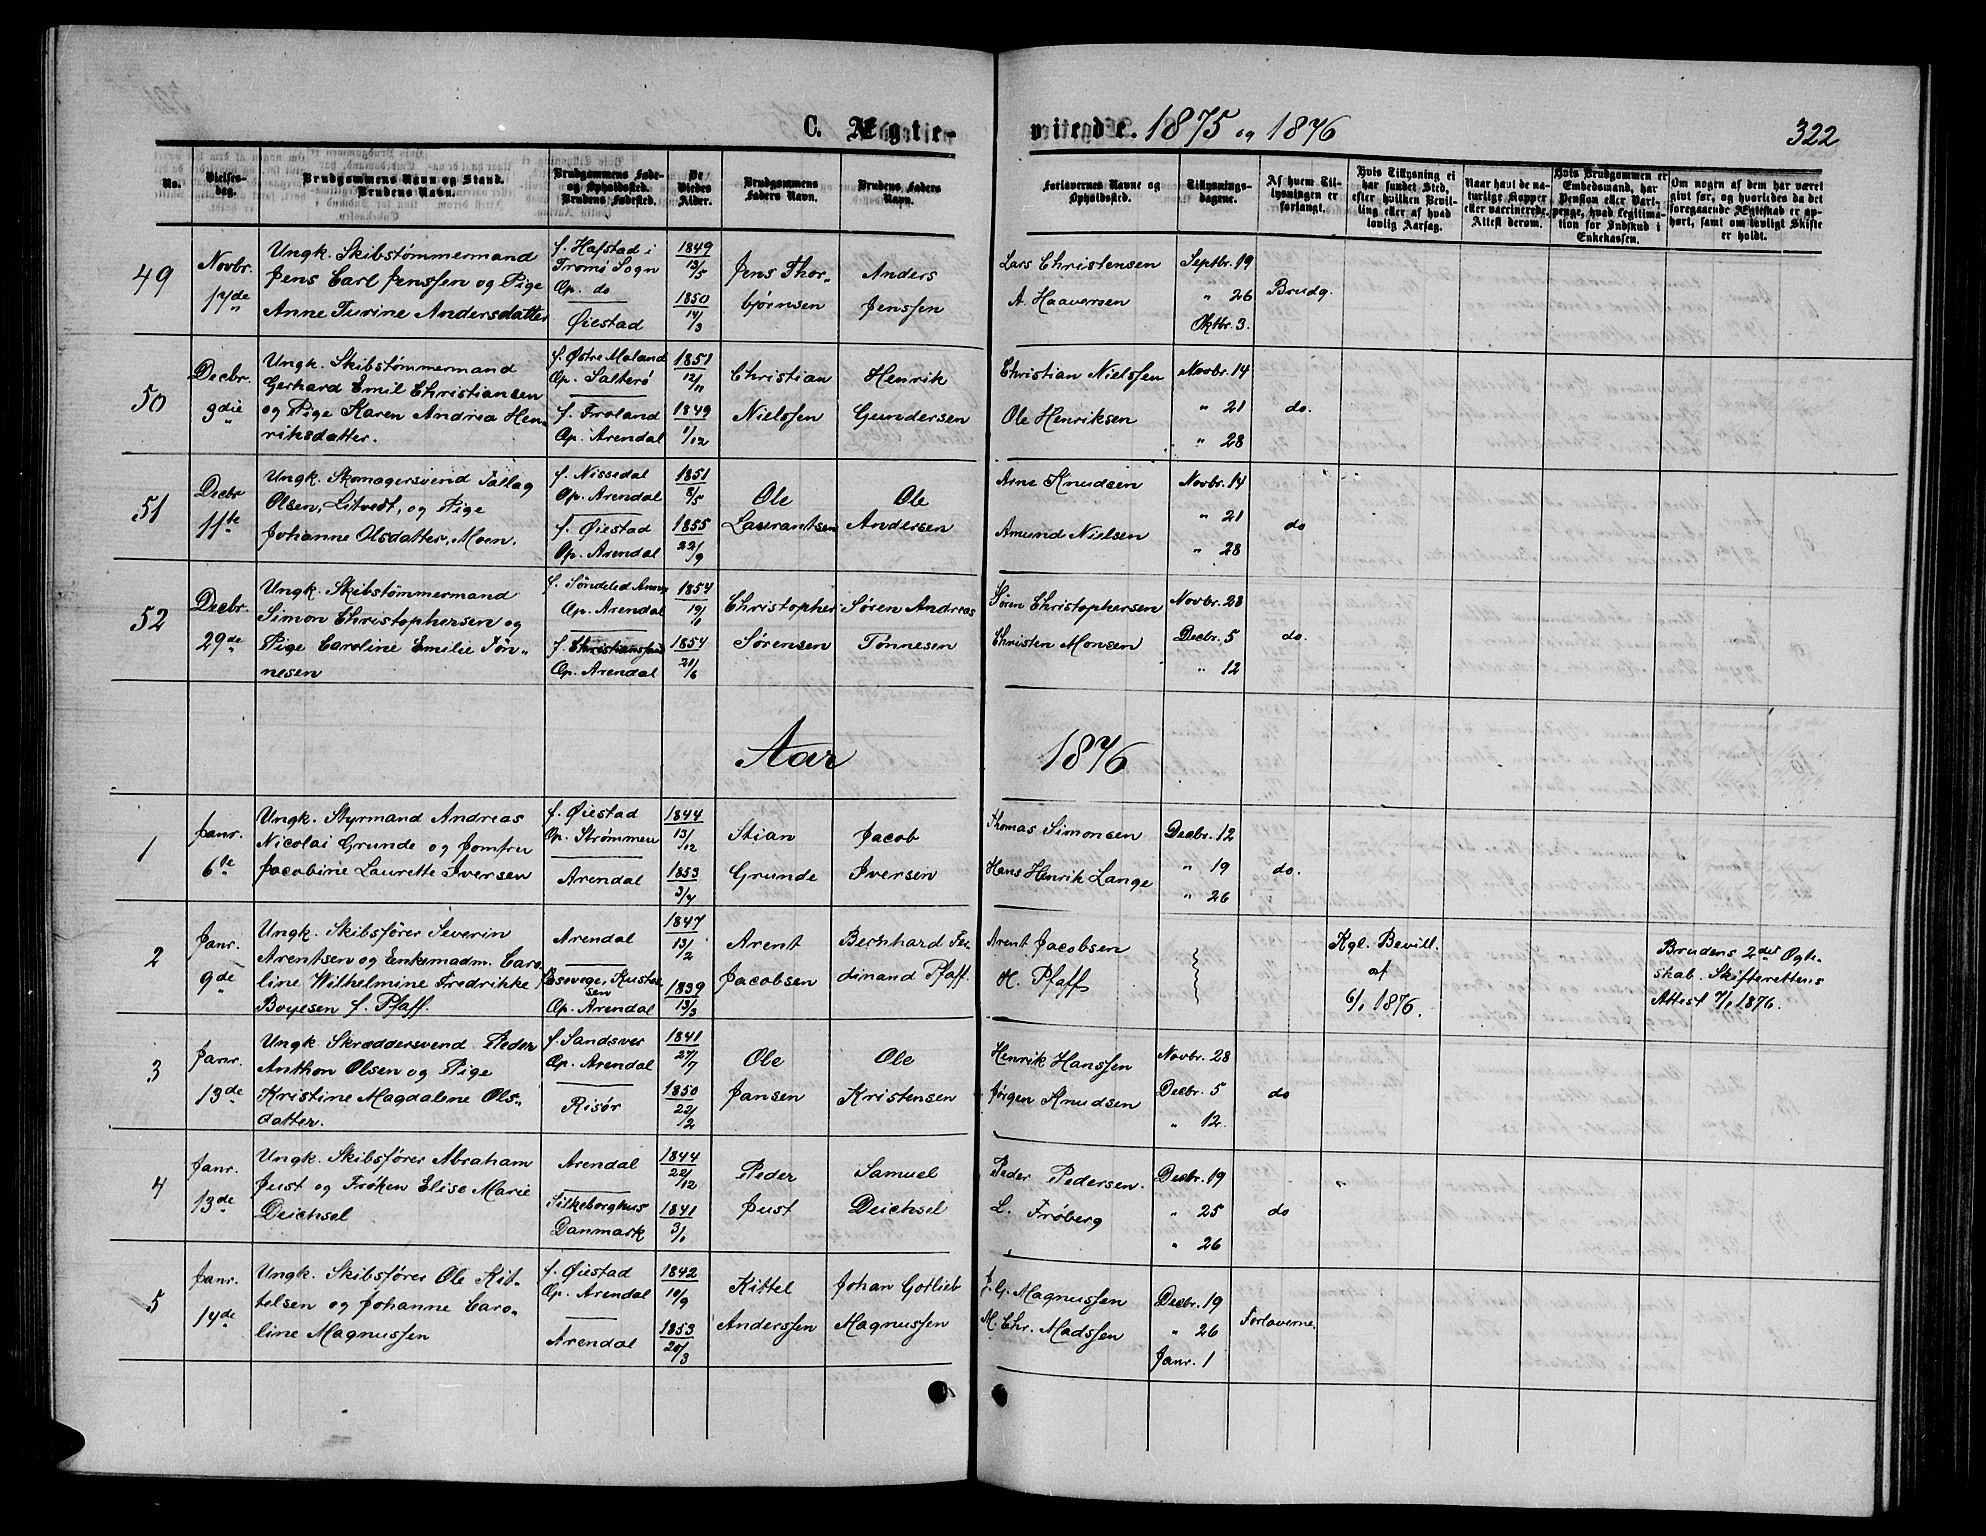 C. Ægte-
viede. 1875 og 1876
322
No.
Vielses-
dag.
Brudgommens Navn og Stand.
Brudens Navn.
Brudgommens Føde-
og Opholdssted.
Brudens Fødested.
De
Viedes
Alder.
Brudgommens
Faders Navn.
Brudens Faders
Navn.
Forlovernes Navne og
Opholdssted.
Tillysnings-
dagene.
Af hvem Til-
lysningen er
forlangt.
Hvis Tillysning ei
har fundet Sted,
efter hvilken Bevil-
ling eller af hvad
lovlig Aarsag.
Naar havt de na-
turlige Kopper
eller vaccinerede.
Attest derom.
Hvis Brudgommen er
Embedsmand, har
Pension eller Vart-
penge, hvad Legitima-
tion for Indskud i
Enkekassen.
Om nogen af dem har været
givt før, og hvorledes da det
foregaaende Ægteskab er op-
hørt, samt om lovligt Skifte
er holdt.
49
Novbr.
17de
Ungk. Skibstømmermand
Jens Carl Jenssen og Pige
Anne Turine Andersdatter
f. Hafstad i
Tromø Sogn
Op. do
Øiestad
1849
13/5
1850
14/3
Jens Thor-
bjørnsen
Anders
Jenssen
Lars Christensen
A. Haaversen
Septbr. 19
" 26
Oktbr. 3.
Brudg.
50
Decbr.
9die
Ungk. Skibstømmermand
Gerhard Emil Christiansen
og Pige Karen Andrea Hen-
riksdatter.
f. Østre Moland
Op. Salterø
f. Froland
Op. Arendal
1851
12/11
1849
1/12
Christian
Nielssen
Henrik
Gundersen
Christian Nielssen
Ole Henriksen
Novbr. 14
" 21
" 28
do.
51
Decbr
11te
Ungk. Skomagersvend Tallag
Olsen, Litvedt, og Pige
Johanne Olsdatter, Moen.
f. Nissedal
Op. Arendal
f. Øiestad
Op. Arendal
1851
8/5
1855
22/9
Ole
Laurantsen
Ole
Andersen
Arne Knudsen
Amund Nielsen
Novbr. 14
" 21
" 28
do
52
Decbr.
29de
Ungk. Skibstømmermand
Simon Christophersen og
Pige Caroline Emilie Tøn-
nesen
f. Søndeled Annex
Op. Arendal
Op. Arendal
1854
19/1
1854
21/6
Christopher
Sørensen
Søren Andreas
Tønnesen
Søren Christophersen
Christen Monsen
Novbr. 28
Decbr. 5
" 12
do.
Aar 1876
1
Janr.
6te
Ungk. Styrmand Andreas
Nicolai Grunde og Jomfru
Jacobine Laurette Iversen
f. Øiestad
Op. Strømmen
Arendal
1844
13/12
1853
3/4
Stian
Grunde
Jacob
Iversen
Thomas Simonsen
Hans Henrik Lange
Decbr. 12
" 19
" 26
do.
2
Janr.
9de
Ungk. Skibsfører Severin
Arentsen og Enkemadm. Caro-
line Wilhelmine Fredrikke
Boyesen f. Pfaff.
Arendal
Op. Arendal
1847
13/2
1839
13/3
Arent
Jacobsen
Bernhard Fer-
dinand Pfaff.
Arent Jacobsen
H. Pfaff
Kgl. Bevill.
af
6/1 1876.
Brudens 2det Ægte-
skab. Skifterettens
Attest 7/1 1876.
3
Janr.
13de
Ungk. Skræddersvend Peder
Anthon Olsen og Pige
Kristine Magdalene Ols-
datter.
f. Sandsver
Op. Arendal
Risør
1841
27/7
1850
22/12
Ole
Jansen
Ole
Kristensen
Henrik Hanssen
Jørgen Knudsen
Novbr. 28
Decbr. 5
" 12
do
4
Janr.
13de
Ungk. Skibsfører Abraham
Just og Frøken Elise Marie
Deichsel
Arendal
Silkeborghus
Danmark
1844
22/12
1841
3/1
Peder
Just
Samuel
Deichsel
Peder Pedersen.
L. Frøberg
Decbr. 19
" 25
" 26
do
5
Janr.
14de
Ungk. Skibsfører Ole Kit-
telsen og Johanne Caro-
line Magnussen
f. Øiestad
Op. Arendal
Arendal
1842
10/9
1853
20/3
Kittel
Anderssen
Johan Gotlieb
Magnussen
J. G. Magnussen
M. Chr. Madssen
Decbr. 19
" 26
Janr. 1
Forloverne.